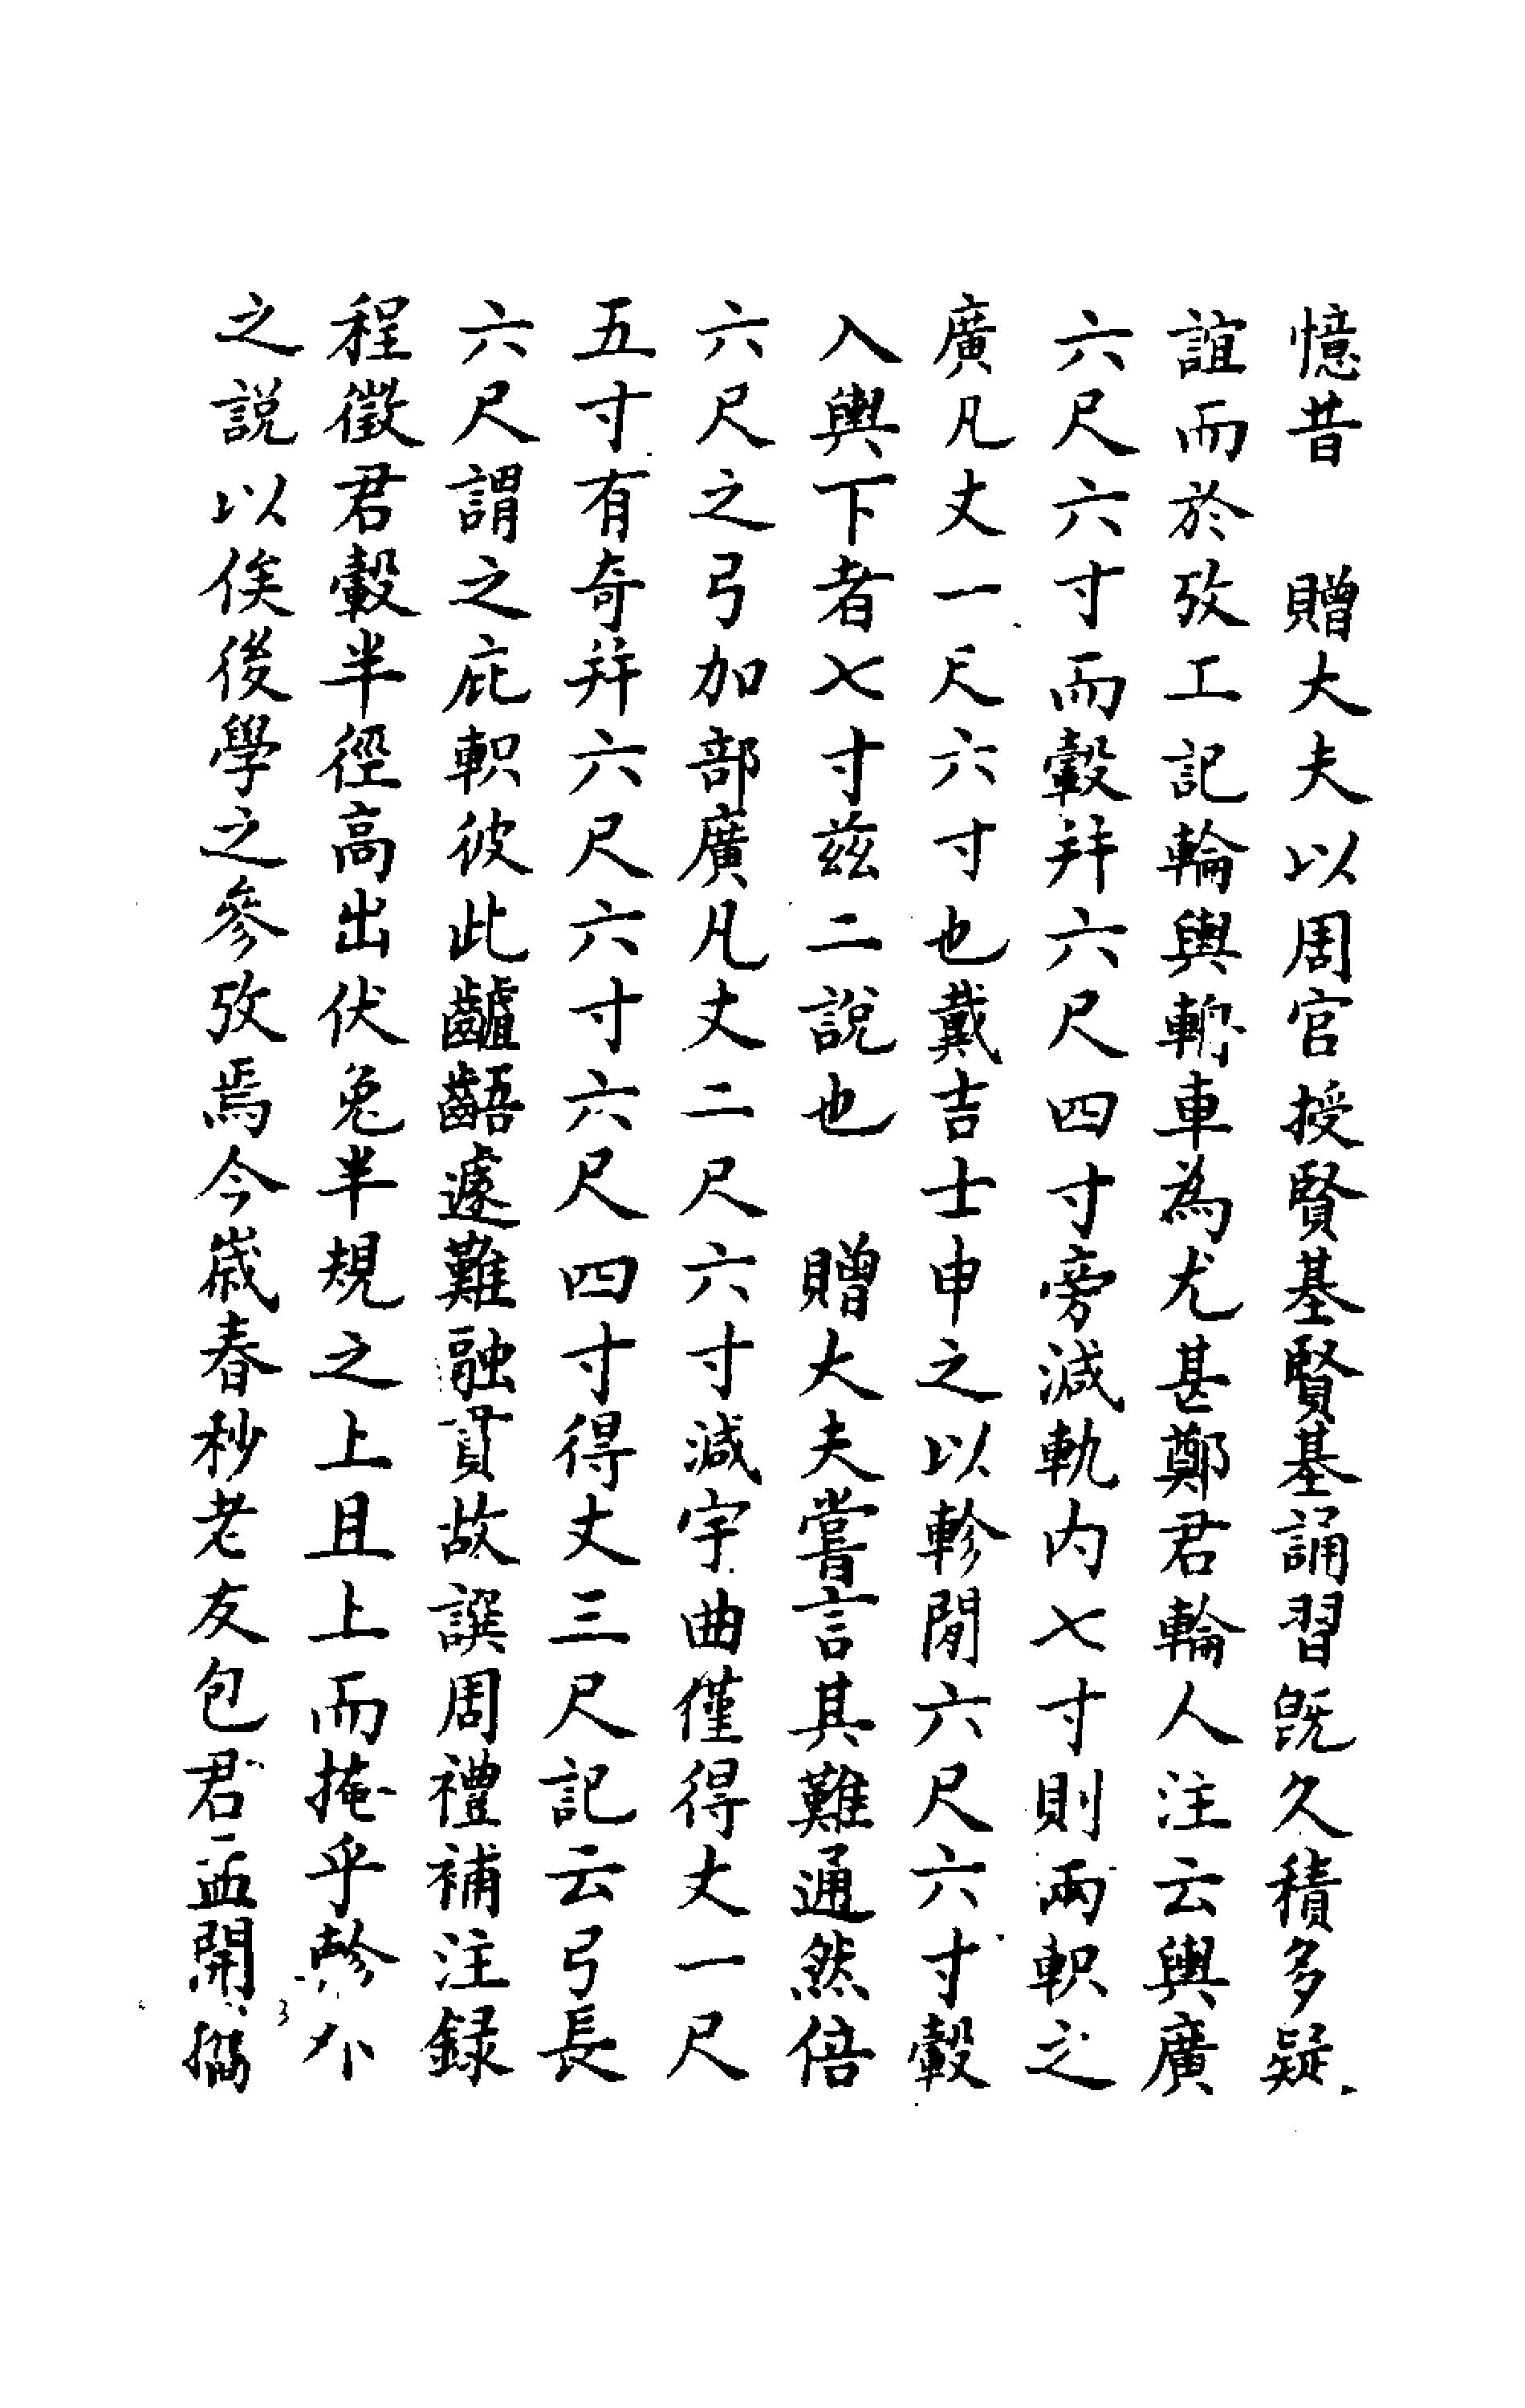 憶昔　贈大夫以周官授賢基賢基誦習旣久積多疑
誼而於攷工記輪輿輈車為尤甚鄭君輪人注云輿廣
六尺六寸而轂拜六尺四寸旁減軌內七寸則兩軹之
廣凡丈一尺六寸也戴吉士申之以軫閒六尺六寸轂
入輿下者七寸茲二說也　贈大夫嘗言其難通然倍
六尺之弓加部廣凡丈二尺六寸減宇曲僅得丈一尺
五寸有奇拜六尺六寸六尺四寸得丈三尺記云弓長
六尺謂之庇軹彼此齟齬遽難融貫故譔周禮補注錄
程徵君轂半徑高出伏兔半規之上且上而掩乎軫外
之說以俟後學之參攷焉今歲春秒老友包君孟開撝